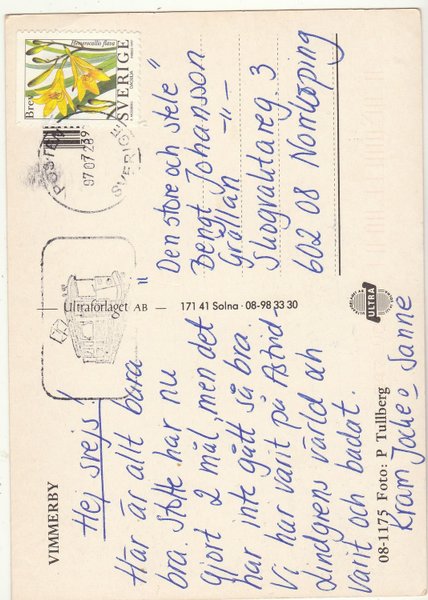 VIMMERBY
Hej svejs!
Här är allt bara
bra. Stolte har nu
gjort 2 mål, men det
har inte gått så bra.
Vi har varit på Astrid-
Lindgrens värld åh
varit och badat.
Kram Jocke o Sanne
08-1175 Foto: P Tullberg
Ultraförlaget AB — 171 41 Solna · 08-98 33 30
ULTRA
Hemerocallis flava
Brev
SVERIGE
POSTEN
SVERIGE
"Den store och stele"
Bengt Johansson
Grållan —"—
Skogvaktareg. 3
602 08 Norrköping